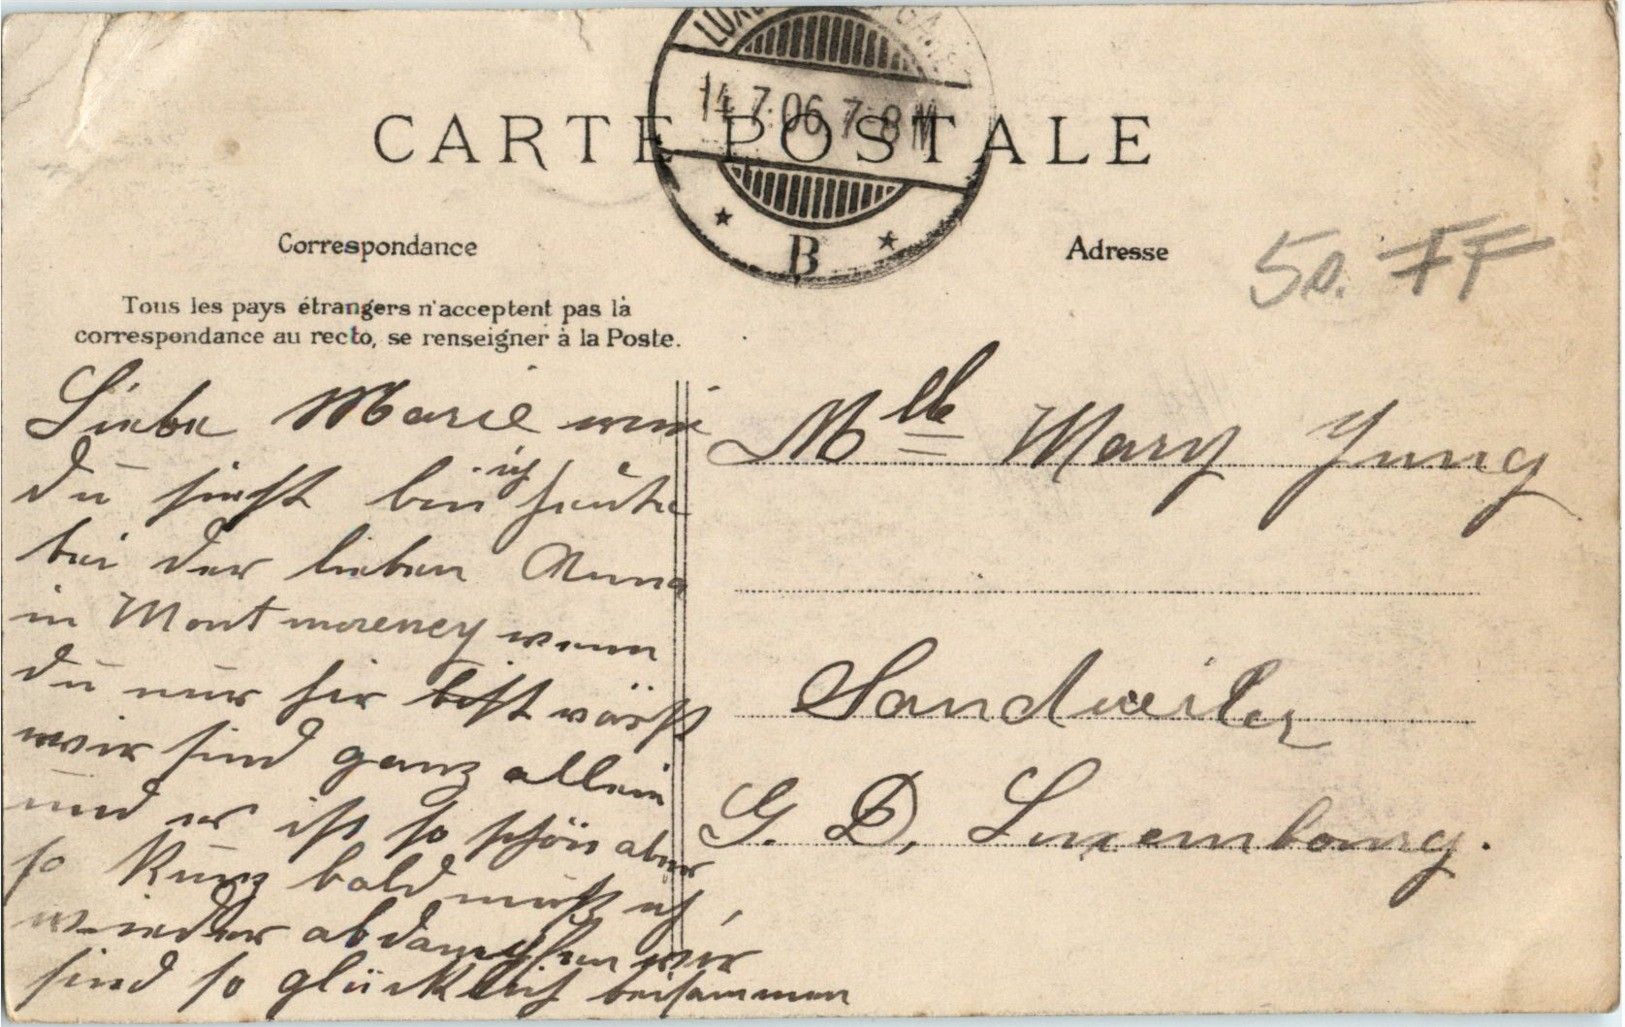 LUX
14.7.06 7-8
B
CARTE POSTALE
Correspondance
Adresse
50. FF
Tous les pays étrangers n'acceptent pas la
correspondance au recto, se renseigner à la Poste.
Liebe Marie wie
du siehst bin ich heute
bei der lieben Anna
in Montmorency wenn
du nur hir bist wärst
wir sind ganz allein
und es ist so schön aber
so kurz bald muß ich,
wieder abdampfen wir
sind so glücklich beisammen
Mlle Mary Jung
Sandweiler
G. D. Luxembourg.